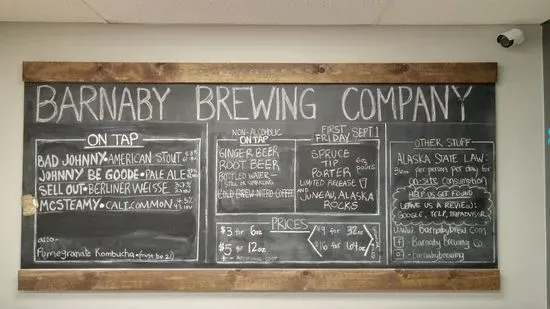 BARNABY BREWING COMPANY
ON TAP
BAD JOHNNY • AMERICAN STOUT
JOHNNY BE GOODE • PALE ALE
SELL OUT • BERLINER WEISSE
MCSTEAMY • CALI COMMON
also -
Pomegranate Kombucha • (must be 21)
NON-ALCOHOLIC
ON TAP
GINGER BEER
ROOT BEER
BOTTLED WATER -
STILL OR SPARKLING
COLD BREW NITRO COFFEE
FIRST FRIDAY SEPT. 1
SPRUCE
TIP
PORTER
LIMITED RELEASE
AND
JUNEAU, ALASKA
ROCKS
PRICES
$3 for 6oz
$5 for 12oz
$9 for 32oz
$16 for 64oz
OTHER STUFF
ALASKA STATE LAW:
36oz per person per day for
on-site consumption
HELP US GET FOUND
LEAVE US A REVIEW:
GOOGLE, YELP, TRIPADVISOR
www.BarnabyBrew.Com
f Barnaby Brewing Co.
- barnabybrewing